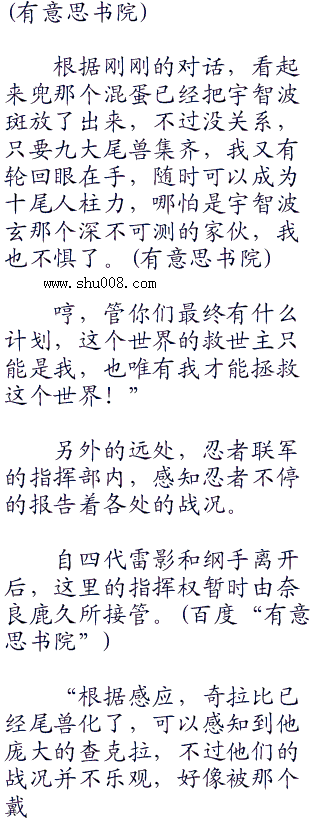 (有意思书院)
根据刚刚的对话，看起
来兜那个混蛋已经把宇智波
斑放了出来，不过没关系，
只要九大尾兽集齐，我又有
轮回眼在手，随时可以成为
十尾人柱力，哪怕是宇智波
玄那个深不可测的家伙，我
也不惧了。(有意思书院)
www.shu008.com
哼，管你们最终有什么
计划，这个世界的救世主只
能是我，也唯有我才能拯救
这个世界！”
另外的远处，忍者联军
的指挥部内，感知忍者不停
的报告着各处的战况。
自四代雷影和纲手离开
后，这里的指挥权暂时由奈
良鹿久所接管。(百度“有意
思书院”)
“根据感应，奇拉比已
经尾兽化了，可以感知到他
庞大的查克拉，不过他们的
战况并不乐观，好像被那个
戴